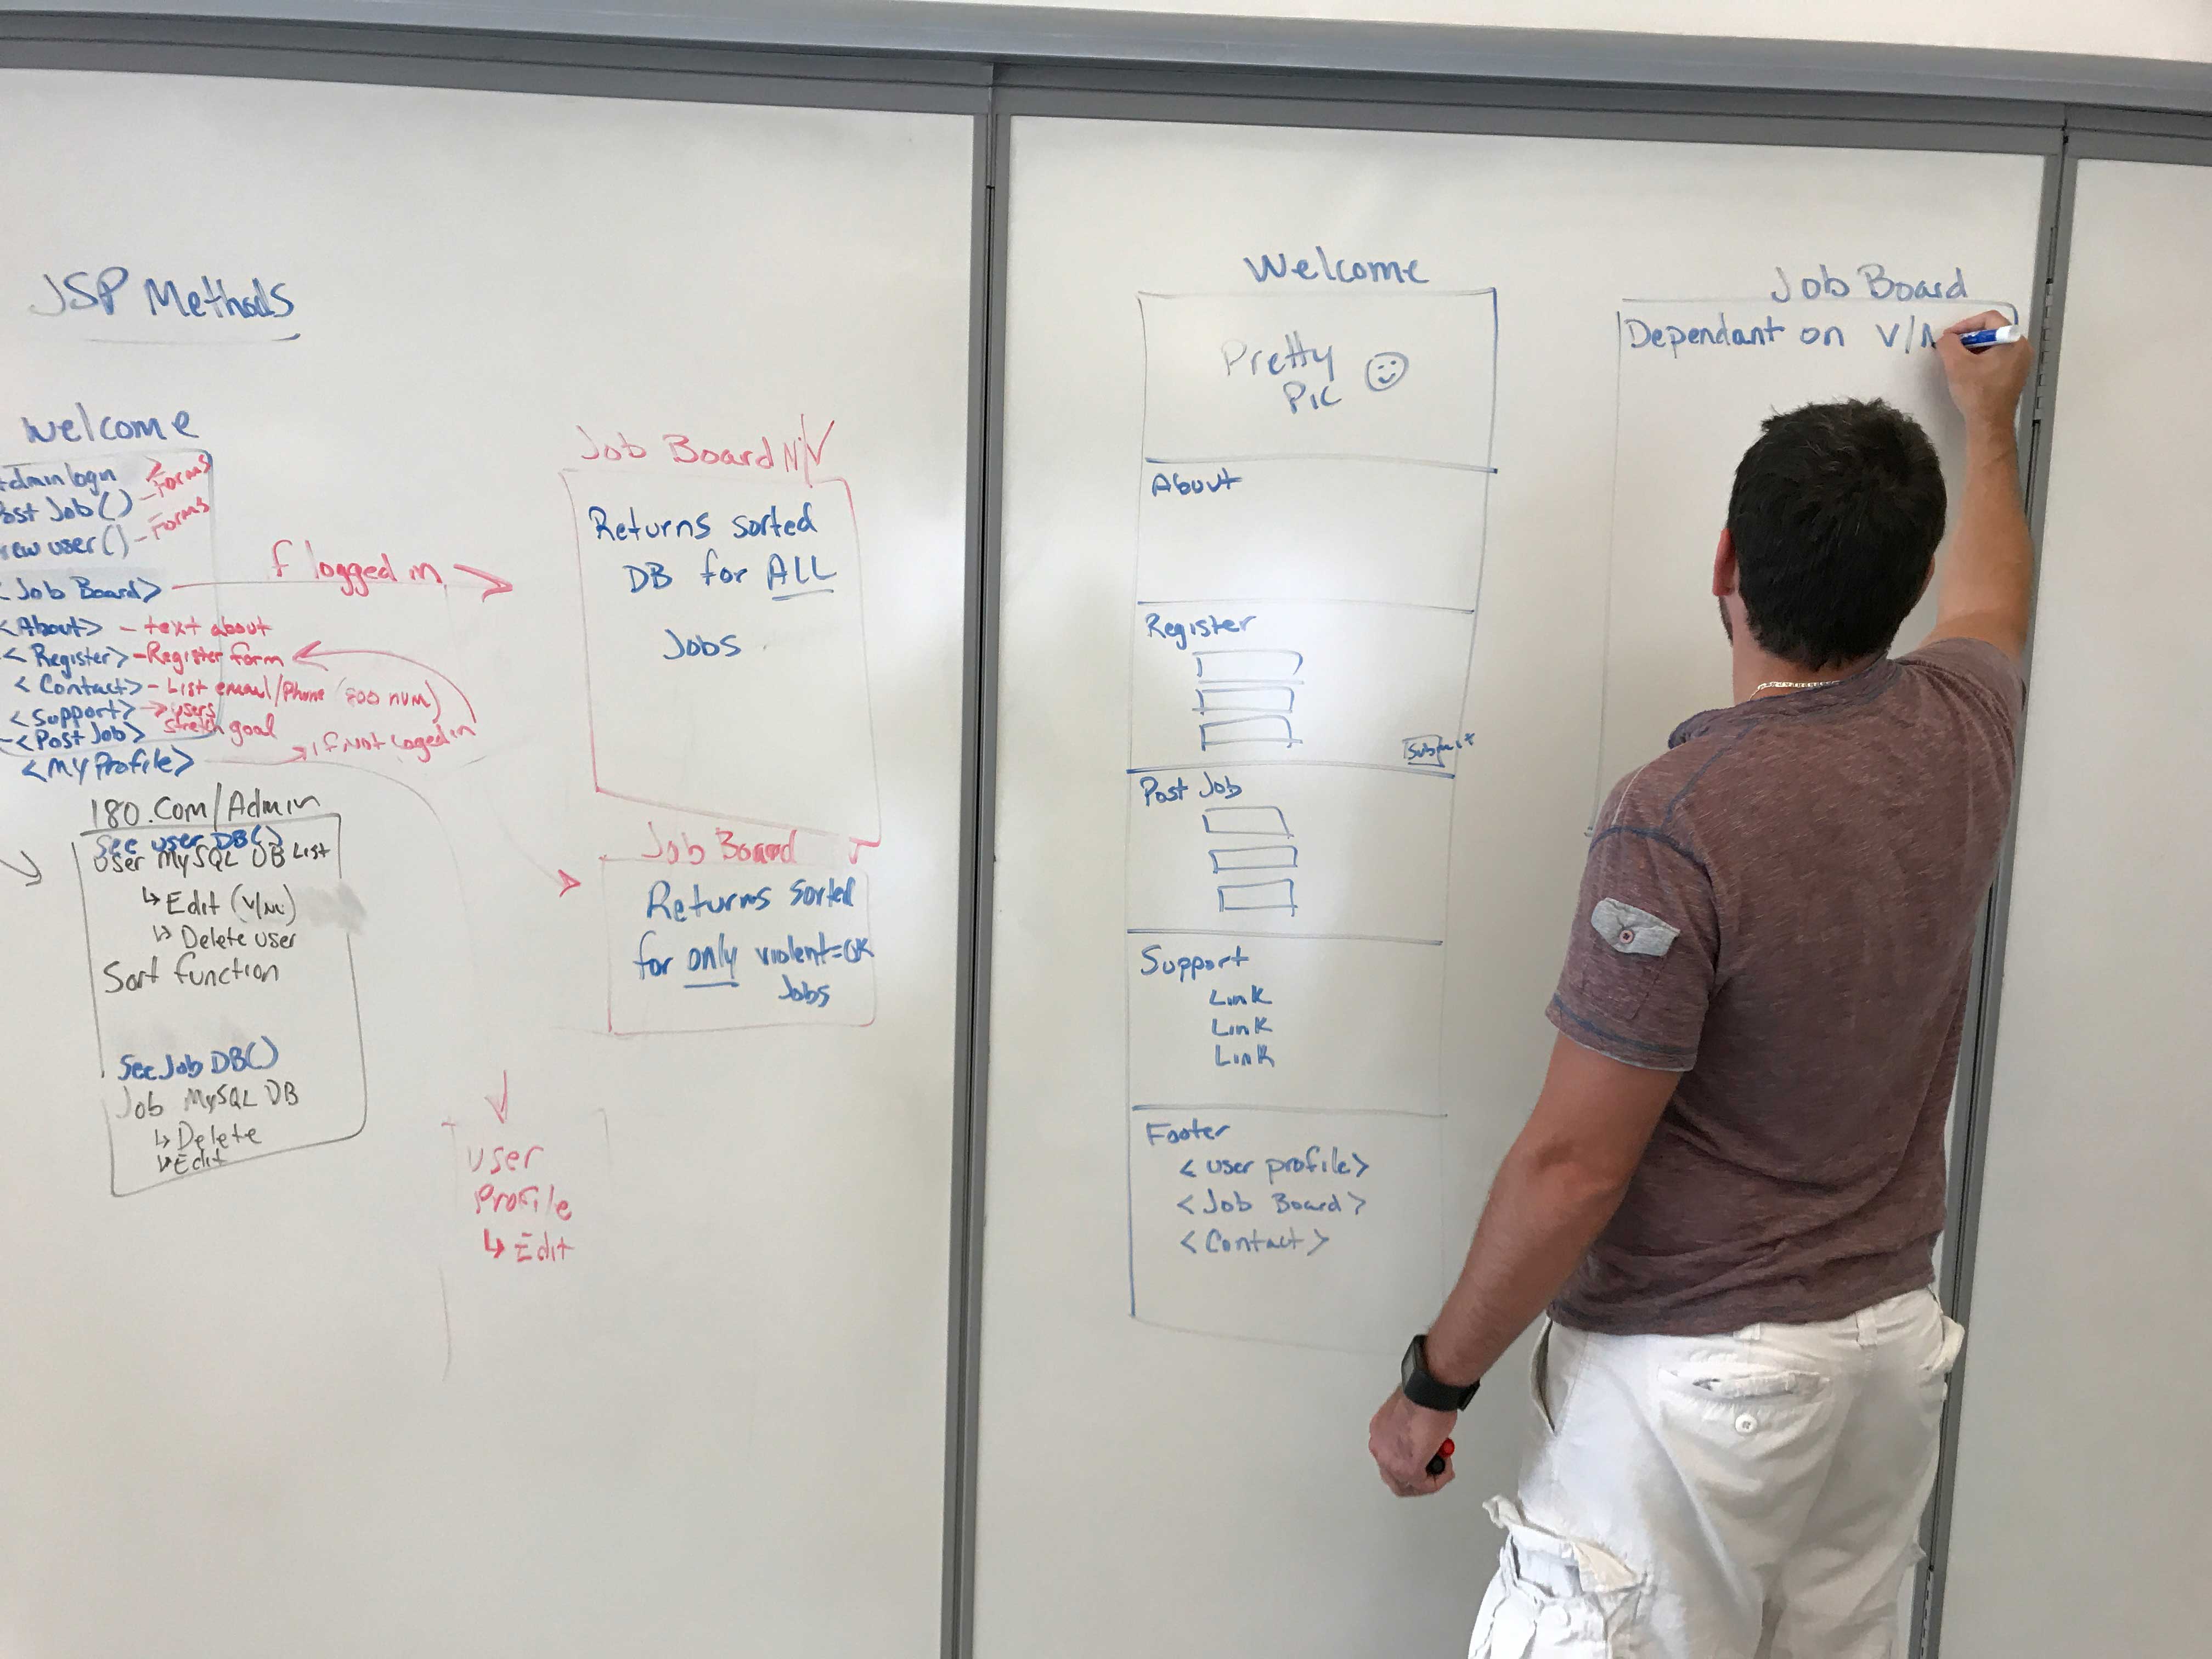 JSP Methods
Welcome
Admin login
Post Job() - Forms
new user() - Forms
<Job Board>
If logged in
<About> - text about
<Register> - Register form
<Contact> - List email/Phone (800 num)
<Support> → users
stretch goal
<Post Job>
if Not Loged in
<My Profile>
180.Com/Admin
See user DB()
User MySQL DB List
↳ Edit (V/NV)
↳ Delete user
Sort function
See Job DB()
Job MySQL DB
↳ Delete
↳ Edit
Job Board N/V
Returns sorted
DB for ALL
Jobs
Job Board
Returns sorted
for only violent=OK
Jobs
User
Profile
↳ Edit
Welcome
Pretty
Pic
About
Register
Submit
Post Job
Support
Link
Link
Link
Footer
<user profile>
<Job Board>
<Contact>
Job Board
Dependant on V/N